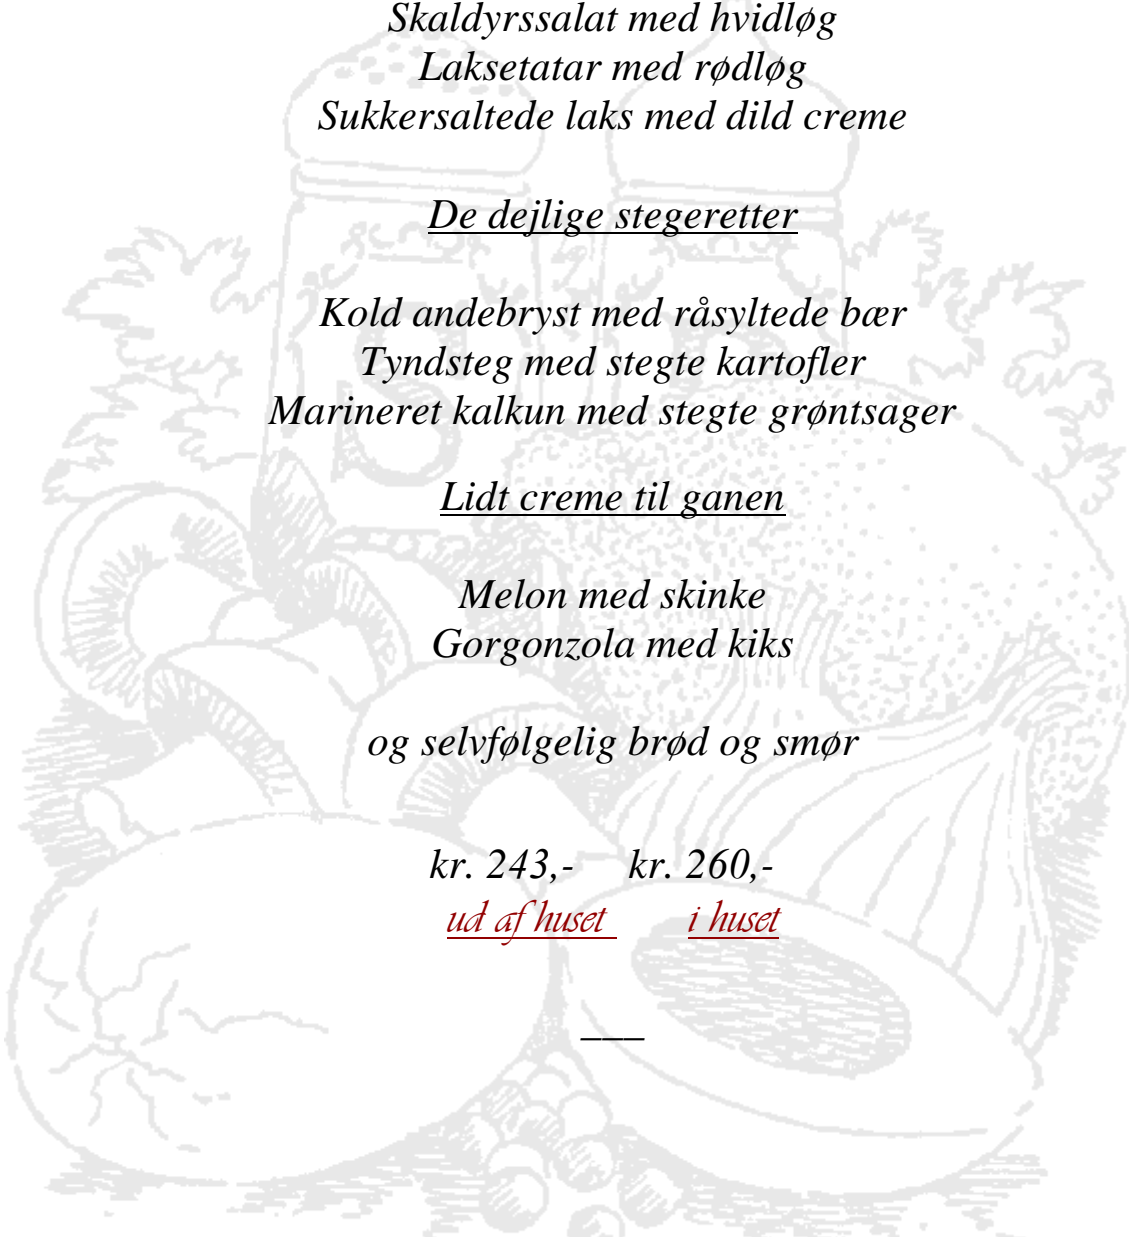 Skaldyrssalat med hvidløg
Laksetatar med rødløg
Sukkersaltede laks med dild creme
De dejlige stegeretter
Kold andebryst med råsyltede bær
Tyndsteg med stegte kartofler
Marineret kalkun med stegte grøntsager
Lidt creme til ganen
Melon med skinke
Gorgonzola med kiks
og selvfølgelig brød og smør
kr. 243,- kr. 260,-
ud af huset i huset
___